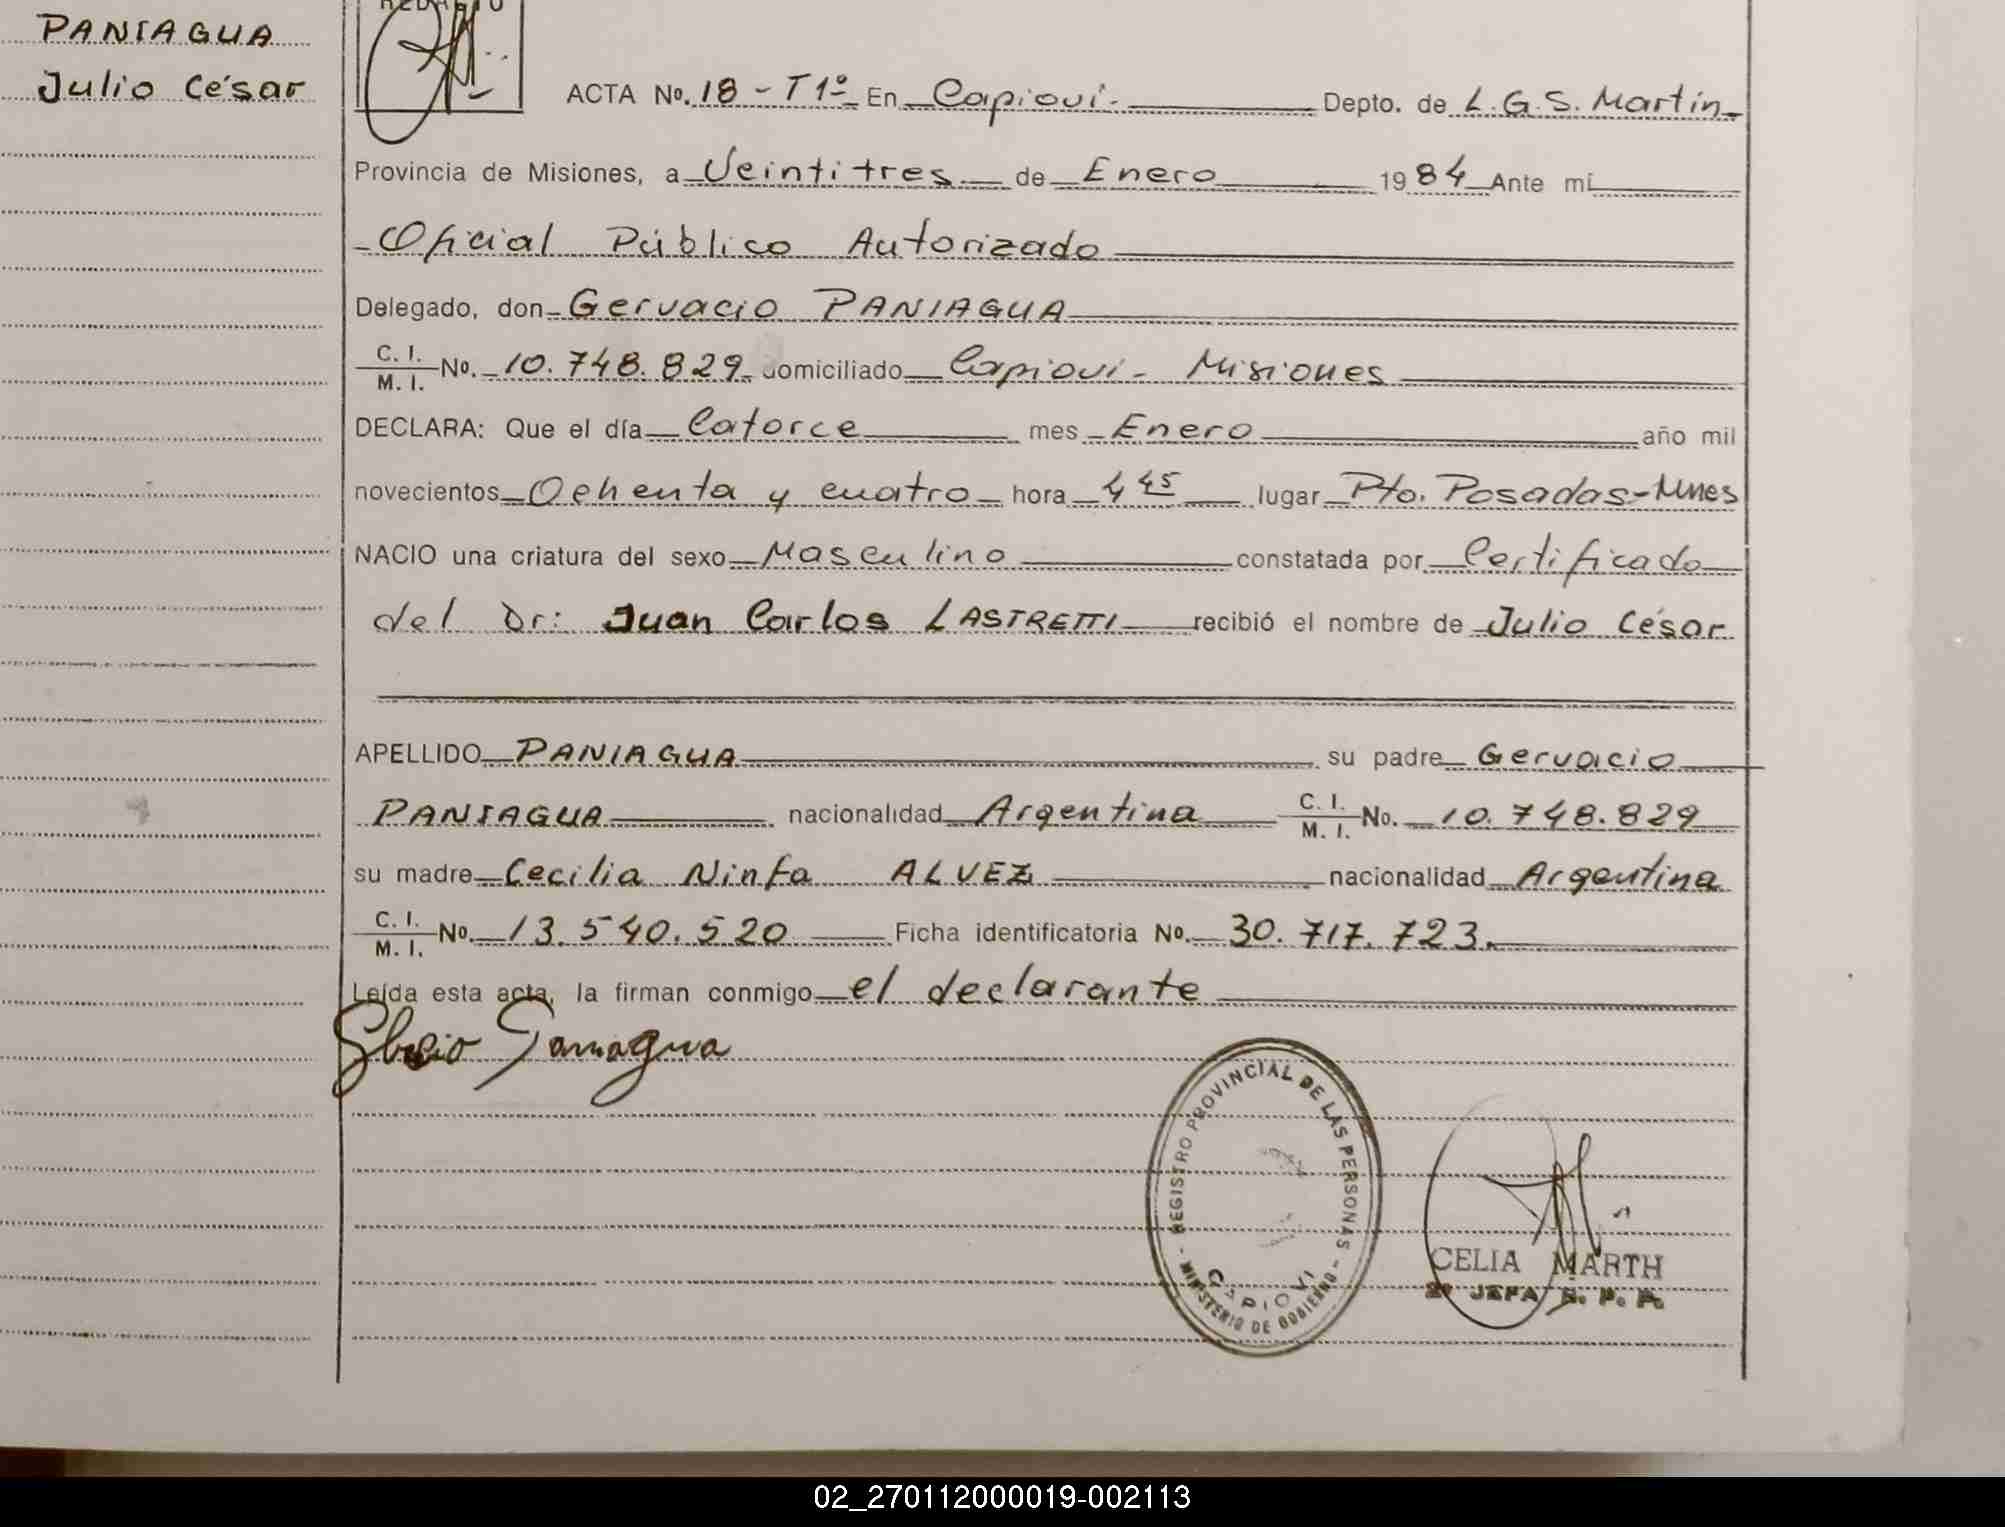 PANIAGUA
Julio César
ACTA No. 18 - T 1º En Capioví. Depto. de L.G.S. Martín
Provincia de Misiones, a Veintitres de Enero 1984 Ante mí
Oficial Público Autorizado
Delegado, don Gervacio PANIAGUA
C. I. / M. I. No. 10.748.829 domiciliado Capioví - Misiones
DECLARA: Que el día Catorce mes Enero año mil
novecientos Ochenta y cuatro hora 4 45 lugar Pto. Posadas-Mnes
NACIO una criatura del sexo Masculino constatada por Certificado
del Dr: Juan Carlos LASTRETTI recibió el nombre de Julio César
APELLIDO PANIAGUA su padre Gervacio
PANIAGUA nacionalidad Argentina C. I. / M. I. No. 10.748.829
su madre Cecilia Ninfa ALVEZ nacionalidad Argentina
C. I. / M. I. No. 13.540.520 Ficha identificatoria No. 30.717.723.
Leída esta acta, la firman conmigo el declarante
Paniagua
REGISTRO PROVINCIAL DE LAS PERSONAS - MINISTERIO DE GOBIERNO -
CAPIOVI
CELIA MARTH
JEFA R. P. P.
02_270112000019-002113